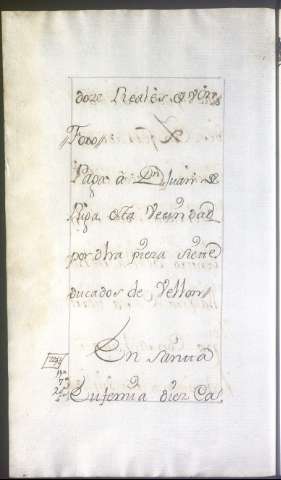 doze Reales &
//Foro//
Papa à Dn Juan &
Ripa esta Vecindad
por otra pieza siette
ducados de Vellon//
En santta
Eufemia diez Ca